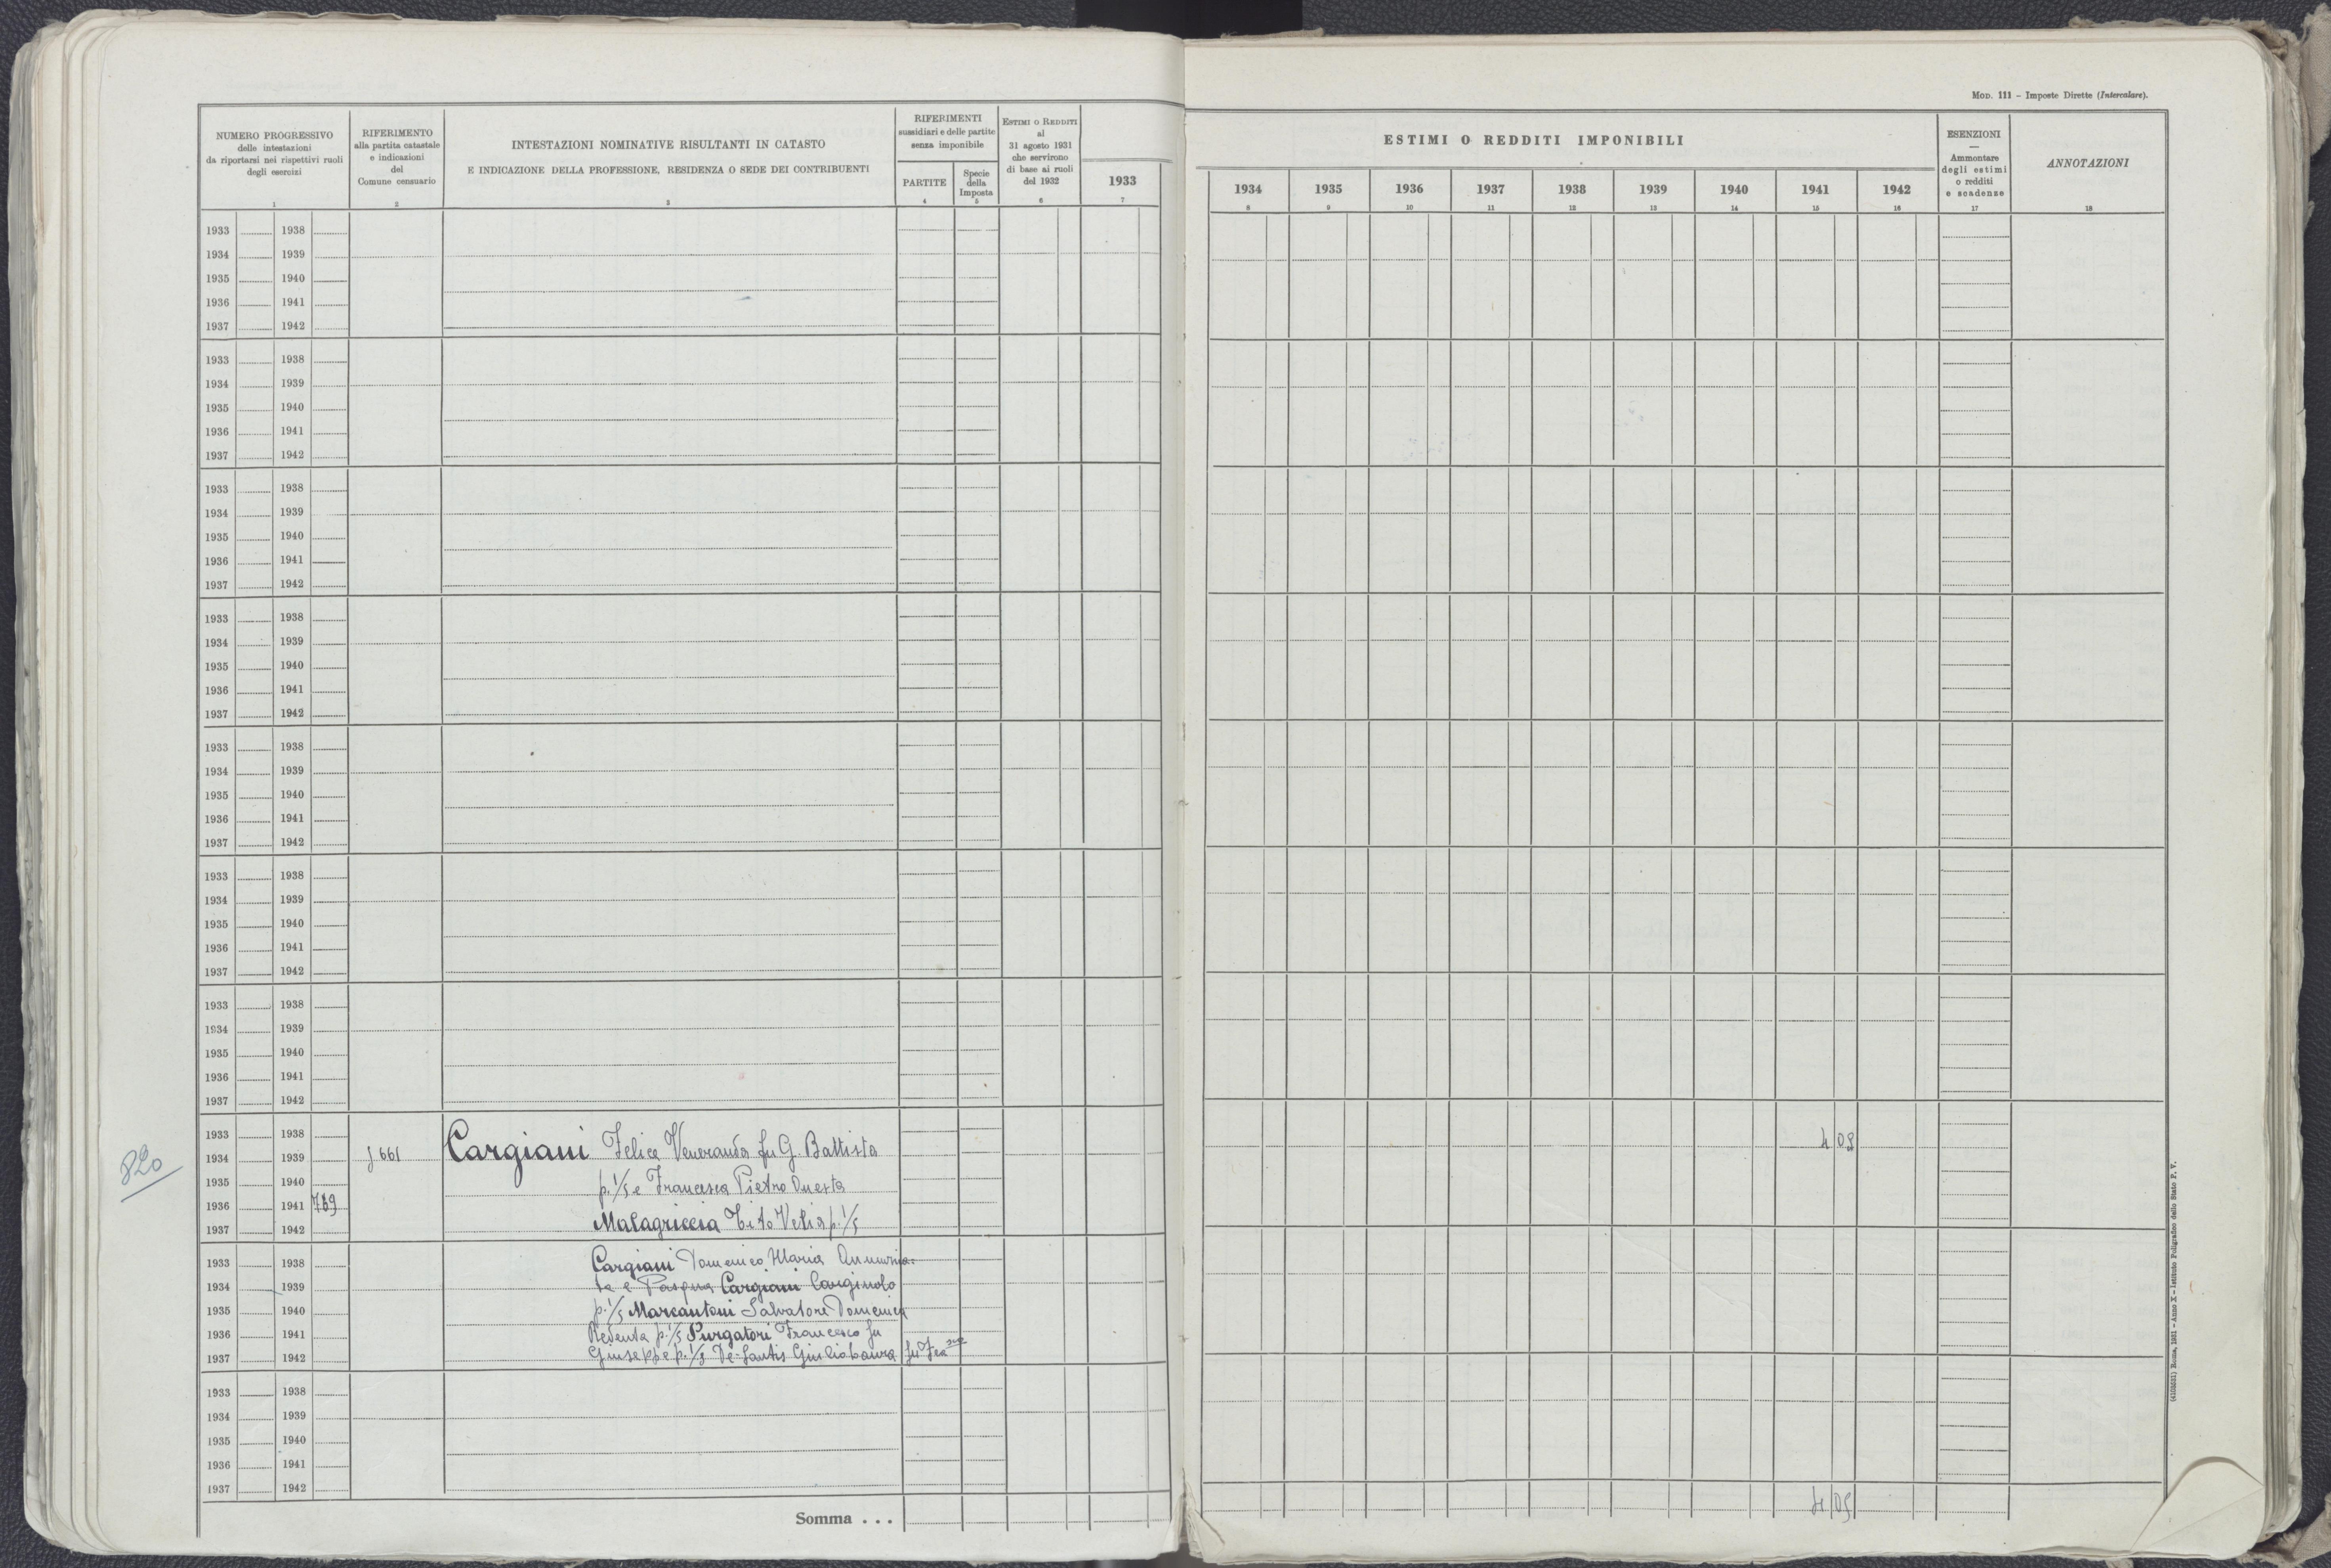 MOD. 111 – Imposte Dirette (Intercalare).
NUMERO PROGRESSIVO
delle intestazioni
da riportarsi nei rispettivi ruoli
degli esercizi
1
RIFERIMENTO
alla partita catastale
e indicazioni
del
Comune censuario
2
INTESTAZIONI NOMINATIVE RISULTANTI IN CATASTO
E INDICAZIONE DELLA PROFESSIONE, RESIDENZA O SEDE DEI CONTRIBUENTI
3
RIFERIMENTI
sussidiari e delle partite
senza imponibile
PARTITE
4
Specie
della
Imposta
5
ESTIMI O REDDITI
al
31 agosto 1931
che servirono
di base ai ruoli
del 1932
6
1933
7
ESTIMI O REDDITI IMPONIBILI
1934 1935 1936 1937 1938 1939 1940 1941 1942
8 9 10 11 12 13 14 15 16
ESENZIONI
—
Ammontare
degli estimi
o redditi
e scadenze
17
ANNOTAZIONI
18
1933 1938
1934 1939
1935 1940
1936 1941
1937 1942
1933 1938
1934 1939
1935 1940
1936 1941
1937 1942
1933 1938
1934 1939
1935 1940
1936 1941
1937 1942
1933 1938
1934 1939
1935 1940
1936 1941
1937 1942
1933 1938
1934 1939
1935 1940
1936 1941
1937 1942
1933 1938
1934 1939
1935 1940
1936 1941
1937 1942
1933 1938
1934 1939
1935 1940
1936 1941
1937 1942
820
1933 1938
1934 1939 661 Cargiani Felice Veneranda fu G. Battista 4 08
1935 1940 p. 1/5 e Francesca Pietro Onesta
1936 1941
1937 1942 Malagriccia Tito Vetis p. 1/5
1933 1938 Cargiani Domenico Maria Annunzia-
1934 1939 ta e Pasqua Cargiani
1935 1940 p. 1/5 Marcantoni Salvatore Domenica
1936 1941 Redenta p. 1/5 Purgatori Francesco fu
1937 1942 Giuseppe p. 1/5 De-Santis fu
1933 1938
1934 1939
1935 1940
1936 1941
1937 1942
Somma . . .
(4103531) Roma, 1931 – Anno X – Istituto Poligrafico dello Stato P. V.